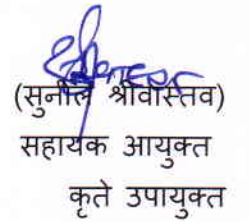 (सुनील श्रीवास्तव)
सहायक आयुक्त
कृते उपायुक्त